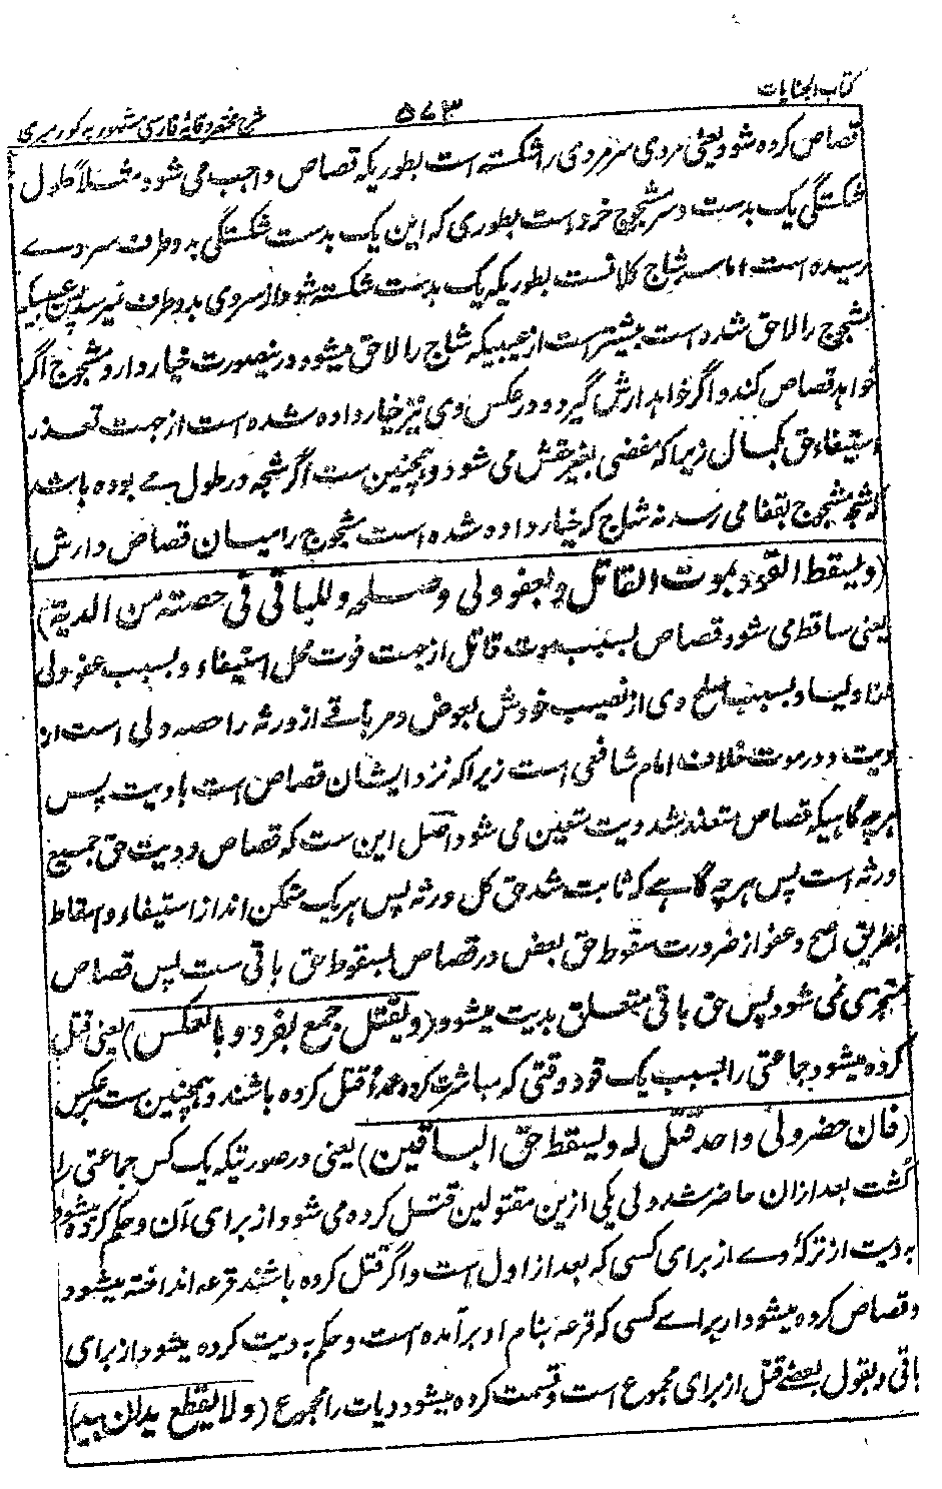 کتاب الجنایات
۵۶۳
شرح مختصر وقایهٔ فارسی مشهور به کورمیری
قصاص کرده شود یعنی مردی سر مردی را شکسته است بطوریکه قصاص واجب می شود مثلاً طول
شکستگی یک بدست و سر مشجوج خرد است بطوری که این یک بدست شکستگی بدو طرف سر وے
رسیده است اما سر شاج کلانست بطوریکه یک بدست شکسته شود از سر وی بدو طرف نمیرسد پس عیبیکه
مشجوج را لاحق شده است بیشتر است از عیبیکه شاج را لاحق میشود در ینصورت خیار دارد مشجوج اگر
خواهد قصاص کند و اگر خواهد ارش گیرد و در عکس وی نیز خیار داده شده است از جهت تعذر
استیفاء حق بکمال زیرا که مفضی بغیر حقش می شود و همچنین ست اگر شجه در طول سے بوده باشد
که شجه مشجوج بقفا می رسد نه شاج که خیار داده شده است مشجوج را میان قصاص و ارش
(ویسقط القود بموت القاتل و بعفو ولی و صلحه وللباقی فی حصته من الدیة)
یعنی ساقط می شود قصاص بسبب موت قاتل از جهت فوت محل استیفاء و بسبب عفو ولی
از اولیا و بسبب صلح وی از نصیب خودش بعوض و مر باقے از ورثه را حصه ولی است از
دیت و در موت خلاف امام شافعی است زیرا که نزد ایشان قصاص است یا دیت پس
هرچه گاهیکه قصاص متعذر شد دیت متعین می شود اصل این ست که قصاص و دیت حق جمیع
ورثه است پس هرچه گاهے که ثابت شد حق کل ورثه پس هر یک متمکن اند از استیفاء و اسقاط
بطریق صلح و عفو از ضرورت سقوط حق بعض در قصاص سقوط حق باقی ست پس قصاص
متجزی نمی شود پس حق باقی متعلق بدیت میشود (ویقتل جمع بفرد و بالعکس) یعنی قتل
کرده میشود جماعتی را بسبب یک فرد وقتی که مباشرت کرده عمداً قتل کرده باشند و همچنین ست بر عکس
(فان حضر ولی واحد قتل له ویسقط حق الباقین) یعنی در صورتیکه یک کس جماعتی را
کشت بعد ازان حاضر شد ولی یکی ازین مقتولین قتل کرده می شود از برای آن و حکم کرده میشود
به دیت از ترکهٔ وے از برای کسی که بعد از اول است و اگر قتل کرده باشند قرعه انداخته میشود
و قصاص کرده میشود از براے کسی که قرعه بنام او برآمده است و حکم به دیت کرده میشود از برای
باقی و بقول بعضے قتل از برای مجموع است و قسمت کرده میشود دیات را مجموع (ولا یقطع یدان بید)